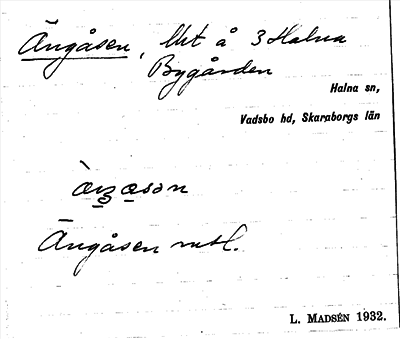 Ängåsen, Ukt å 3 Halna
Bygården
Halna sn,
Vadsbo hd, Skaraborgs län
Ängåsen
L. MADSÉN 1932.